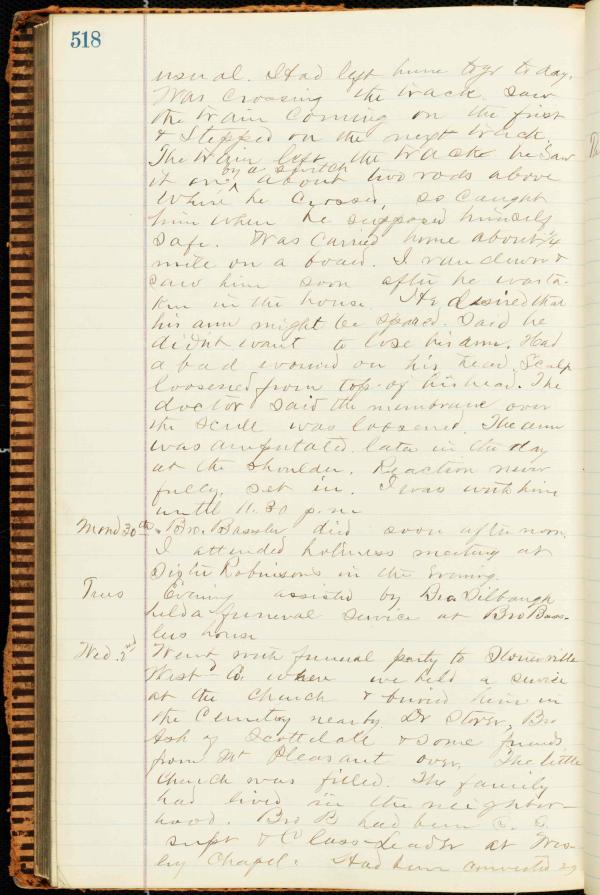 518
usual. Had left home to go to day.
Was crossing the track. Saw
the train coming on the first
& stepped on the next track.
The train left the track he saw
by a switch
it on ^ about two rods above
where he crossed, so caught
him when he supposed himself
safe. Was carried home about 1/4
mile on a board. I ran down &
saw him soon after he was ta-
ken in the house. He desired that
his arm might be spared. Said he
didnt want to lose his arm. Had
a bad wound on his head. Scalp
loosened from top of his head. The
doctor said the membrane over
the scull was loosened. The arm
was amputated late in the day
at the shoulder. Reaction never
fully set in. I was with him
until 11.30 p.m.
Mond 30th. Bro. Bassler died soon after noon.
I attended holiness meeting at
Sister Robinsons in the Evening.
Tues Evening assisted by Bro Dilbaugh
held a funeral service at Bro Bass-
lers house
Wed. 2nd Went with funeral party to
Westd Co. where we held a service
at the church & buried him in
the Cemetery nearby. Dr Storer, Bro
Ash of Scottdale & some friends
from Mt Pleasant over. The little
church was filled. The family
had lived in the neighbor-
hood. Bro B had been S. S.
supt & Class-Leader at Wes-
ley Chapel. Had been converted